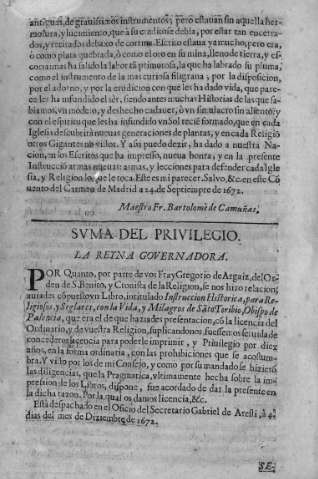 antiguas, de gravissimos instrumentos; pero estauan sin aquella her-
mosura, y lucimiento, que à su ser se debia, por estar tan encerra-
dos, y retirados debaxo de cortina. Escrito estaua ya mucho, pero era,
ò como plata quebrada, ò como el oro en su mina, lleno de tierra, y es-
coria: mas ha salido la labor tã primorosa, la que ha labrado su pluma,
como el instrumento de la mas curiosa filigrana; por la disposicion,
por el adorno, y por la erudicion con que les ha dado vida, que pare-
ce les ha infundido el sèr, siendo antes muchas Historias de las que sa-
biamos, vn modelo, y deshecho cadauer, ò vn simulacro sin aliento; y
con el espiritu que les ha infundido vn Sol recien formado, que en cada
Iglesia descubrirà nueuas generaciones de plantas, y en cada Religiõ
otros Gigantes no vistos. Y assi puedo dezir, ha dado a nuestra Na-
cion, en los Escritos que ha impresso, nueua honra, y en la presente
Instruccion armas nueuas: armas, y lecciones para defender cada Igle
sia, y Religion lo que le toca. Este es mi parecer. Salvo, &c. en este Cõ
uento del Carmen de Madrid a 24. de Septiembre de 1672.
Maestro Fr. Bartolomè de Camuñas.
SVMA DEL PRIVILEGIO.
LA REYNA GOVERNADORA.
POR Quanto, por parte de vos Fray Gregorio de Argaiz, del Or-
den de S. Benito, y Cronista de la Religion, se nos hizo relacion,
auiades cõpuesto vn Libro, intitulado Instruccion Historica, para Re-
ligiosos, y Seglares, con la Vida, y Milagros de Sãto Toribio, Obispo de
Palencia, que era el de que haziades presentacion, cõ la licencia del
Ordinario, y de vuestra Religion, suplicandonos fuessemos seruida de
concederos licencia para poderle imprimir, y Priuilegio por diez
años, en la forma ordinaria, con las prohibiciones que se acostum-
bra. Y visto por los de mi Consejo, y como por su mandado se hizieró
las diligencias, que la Pragmatica, vltimamente hecha sobre la im-
pression de los Libros, dispone, fue acordado de dar la presente en
la dicha razon. Por la qual os damos licencia, &c.
Està despachado en el Oficio del Secretario Gabriel de Aresti, à 4.
dias del mes de Diziembre de 1672.
SE-